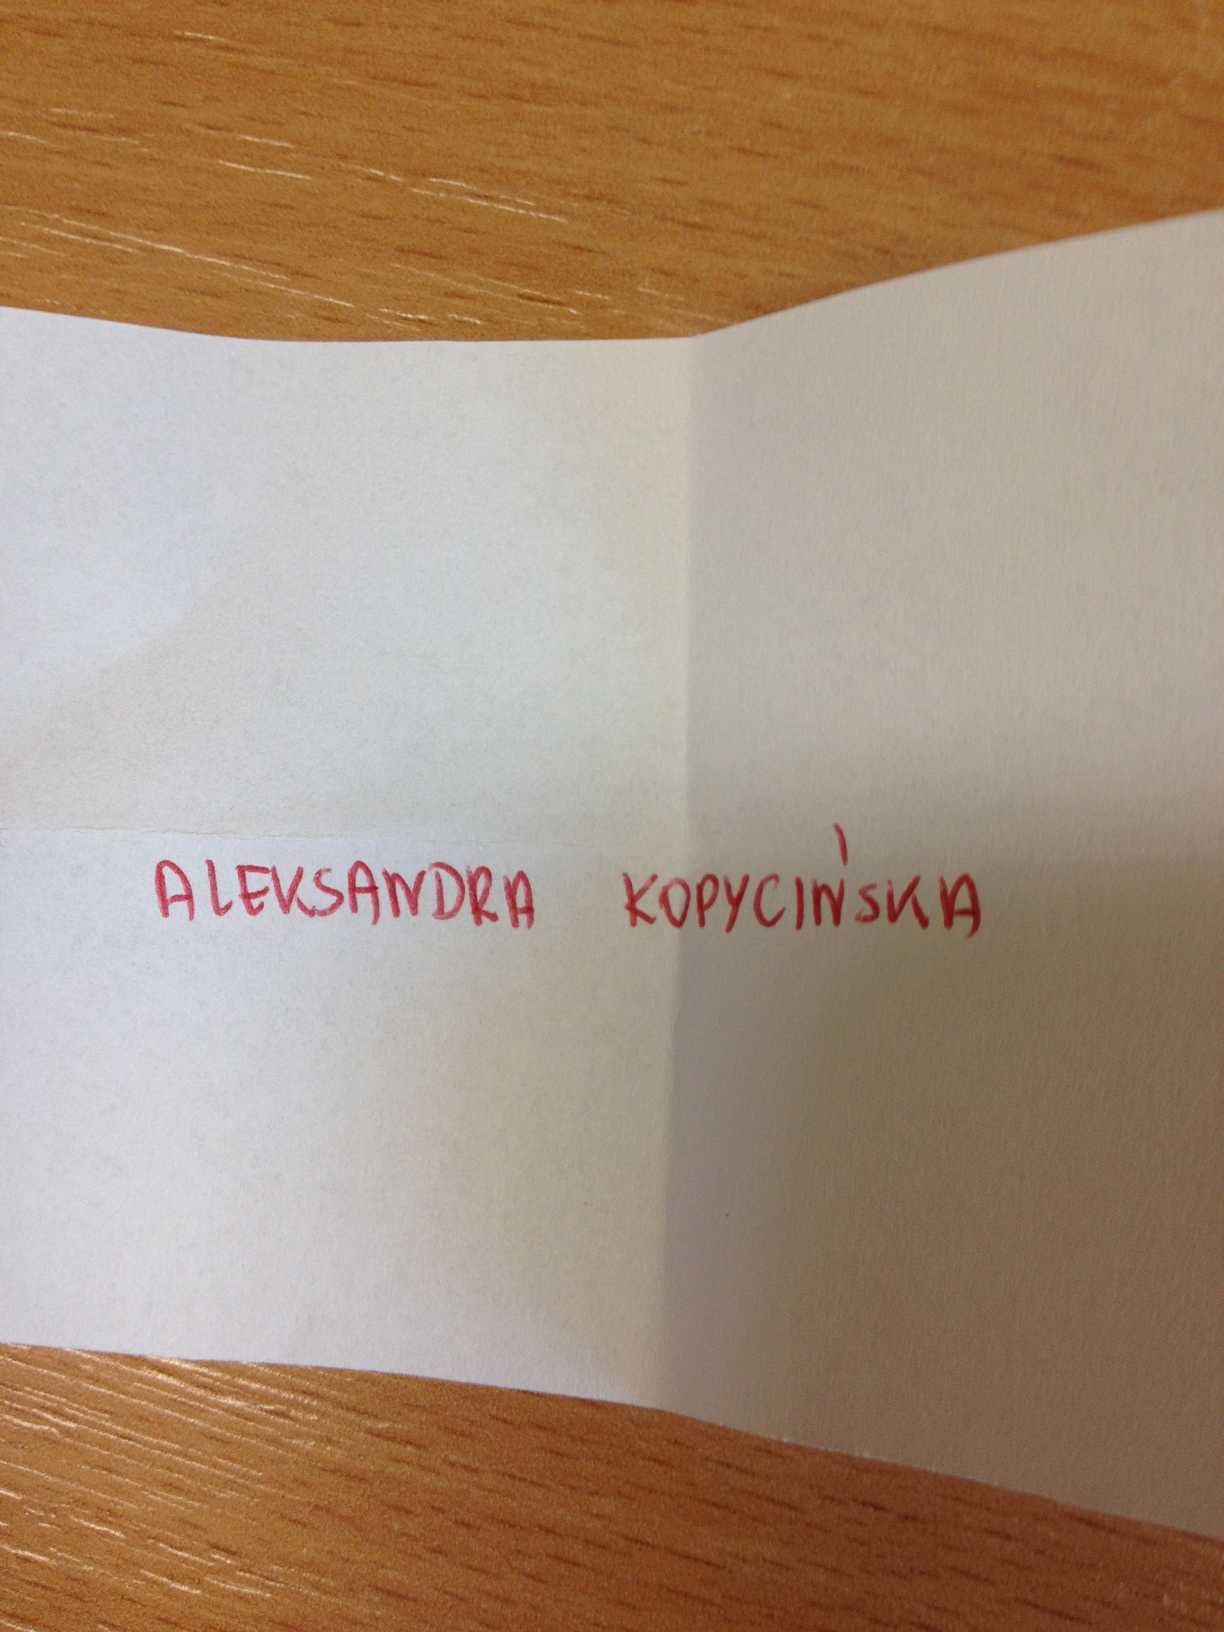 ALEKSANDRA KOPYCIŃSKA